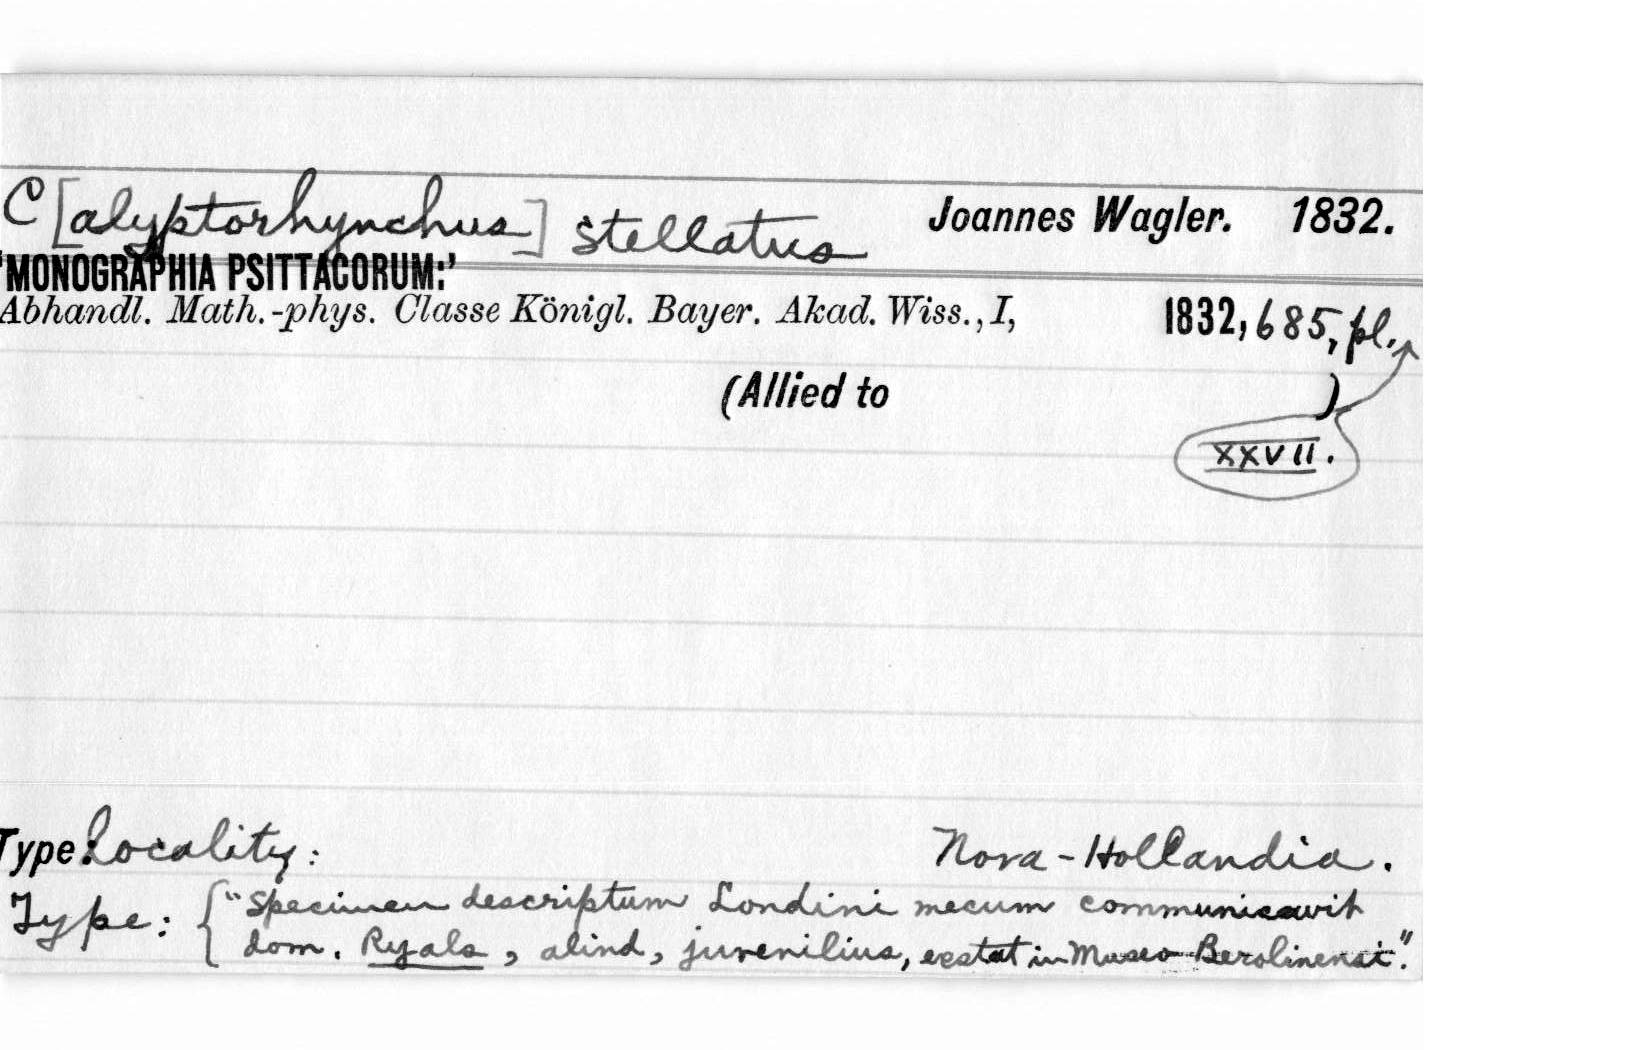 C[alyptorhynchus] stellatus Joannes Wagler. 1832.
'MONOGRAPHIA PSITTACORUM:'
Abhandl. Math.-phys. Classe Königl. Bayer. Akad. Wiss., I, 1832, 685, pl.
(Allied to )
XXVII.
Type locality: Nova-Hollandia.
Type: { "Specimen descriptum Londini mecum communicavit
dom. Ryals, aliud, juvenilius, exstat in Museo Berolinensi".